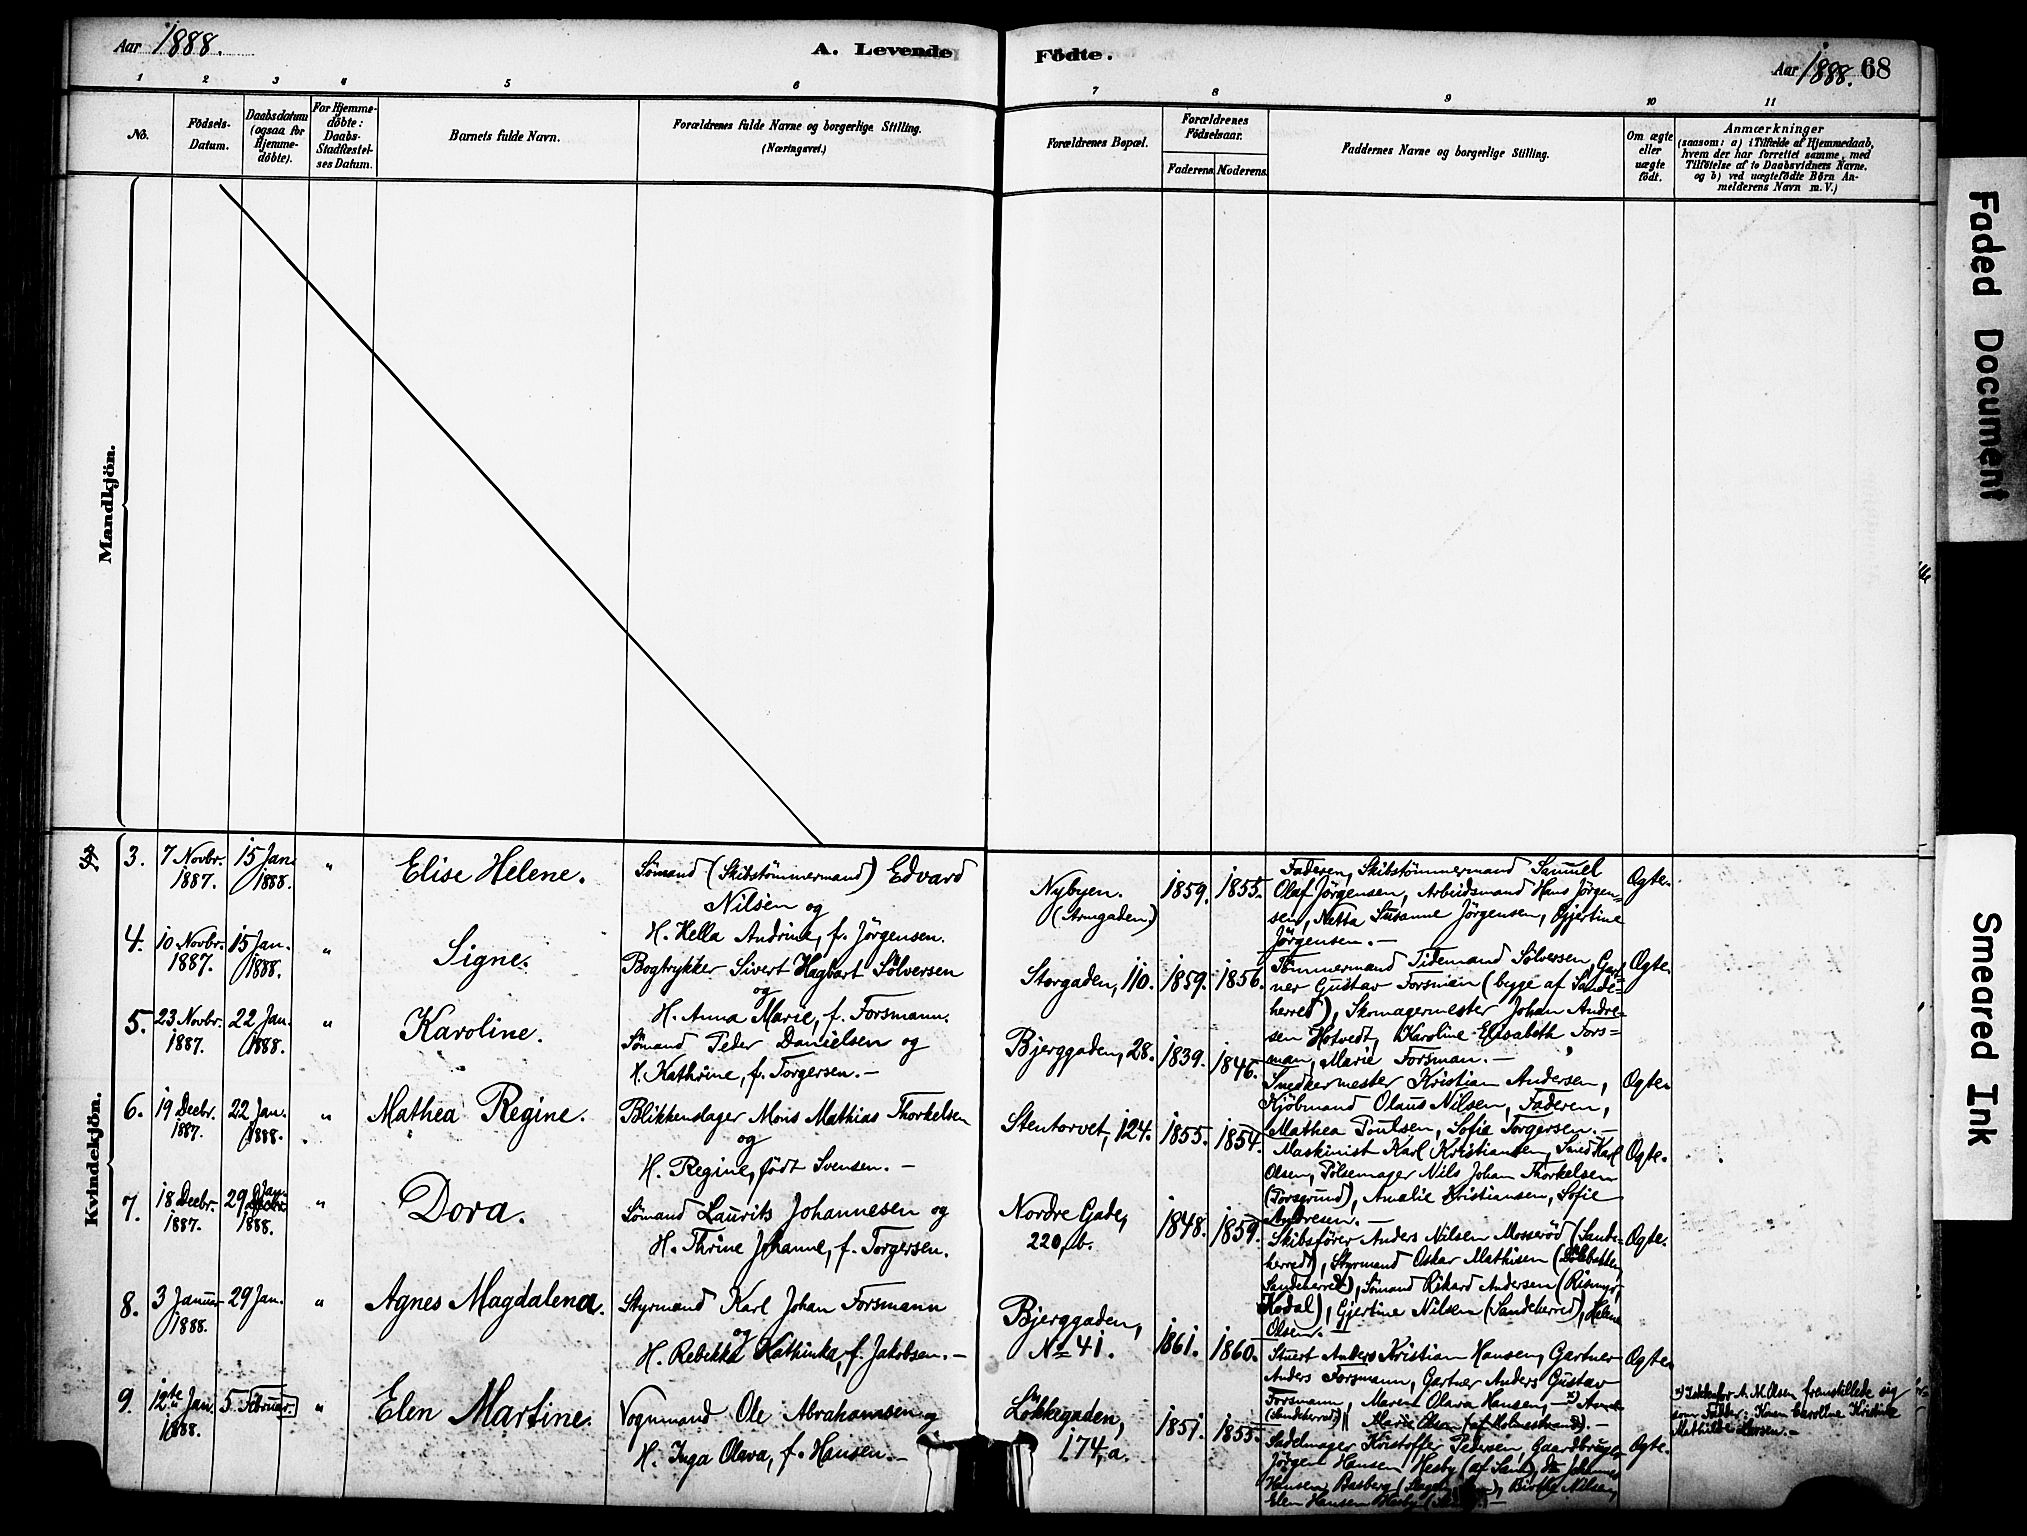 Aar 1888.
A. Levende Födte.
Aar 1888. 68
1 2 3 4 5 6 7 8 9 10 11
No.
Födsels-Datum.
Daabsdatum (ogsaa for Hjemme-döbte).
For Hjemme-döbte: Daabs-Stadfæstel-ses Datum.
Barnets fulde Navn.
Forældrenes fulde Navne og borgerlige Stilling.
(Næringsvei.)
Forældrenes Bopæl.
Forældrenes Födselsaar.
Faderens. Moderens.
Faddernes Navne og borgerlige Stilling.
Om ægte eller uægte født.
Anmærkninger
(saasom: a) i Tilfælde af Hjemmedaab,
hvem der har forrettet samme, med
Tilföielse af to Daabsvidners Navne,
og b) ved uægtefödte Börn An-
melderens Navn m. V.)
Mandkjön.
Kvindekjön.
3. 7 Novbr. 1887. 15 Jan. 1888. " Elise Helene.
Sømand (Skibstømmermand) Edvard
Nilsen og
H. Hella Andrine, f. Jörgensen.
Nybyen. (Armgaden) 1859. 1855.
Faderen, Skibstömmermand Samuel
Olaf Jørgensen, Arbeidsmand Hans Jørgen-
sen, Netta Susanne Jørgensen, Gjertine
Jørgensen.—
Ægte.
4. 10 Novbr. 1887. 15 Jan. 1888. " Signe.
Bogtrykker Sivert Hagbart Sölversen
og
H. Anna Marie, f. Forsmann.
Storgaden, 110. 1859. 1856.
Tömmermand Tidemand Sölversen, Gart-
ner Gustav Forsman (begge af Sande-
herred), Skomagermester Johan Andre-
sen Hotvedt, Karoline Elisabeth Fors-
man, Marie Forsman.—
Ægte.
5. 23 Novbr. 1887. 22 Jan. 1888. " Karoline.
Sømand Peder Danielsen og
H. Kathrine, f. Torgersen.—
Bjerggaden, 28. 1839. 1846.
Snedkermester Kristian Andersen,
Kjöbmand Olaus Nilsen, Faderen,
Mathea Poulsen, Sofie Torgersen.—
Ægte.
6. 19 Decbr. 1887. 22 Jan. 1888. " Mathea Regine.
Blikkenslager Mons Mathias Thorkelsen
og
H. Regine, født Svensen.—
Stentorvet, 124. 1855. 1854.
Maskinist Karl Kristiansen, Smed Karl
Olsen, Pølsemager Nils Johan Thorkelsen
(Porsgrund), Amalie Kristiansen, Sofie
Andresen.—
Ægte.
7. 18 Decbr. 1887. 29 Jan. 1888. " Dora.
Sømand Laurits Johannesen og
H. Thrine Johanne, f. Torgersen.
Nordre Gade, 220, b. 1848. 1859.
Skibsfører Anders Nilsen Mosserød (Sande-
herred), Styrmand Oskar Mathisen
Sandeherred), Sømand Rikard Andersen
Kodal), Gjertine Nilsen (Sandeherred), Helene
Olsen.
Ægte.
8. 3 Januar 1888. 29 Jan. " Agnes Magdalena.
Styrmand Karl Johan Forsmann
og
H. Rebekka Kathinka, f. Jakobsen.—
Bjerggaden, No 41. 1861. 1860.
Stuert Anders Kristian Hansen, Gartner
Anders Forsmann, Gartner Anders Gustav
Forsmann, Maren Olava Hansen,
(Sandeherred) Marie Olsen (af Holmestrand).—
Ægte.
9. 12te Jan. 1888. 5 Februar. " Elen Martine.
Vognmand Ole Abrahamsen og
H. Inga Olava, f. Hansen.—
Løkkegaden, 174, a. 1851. 1855.
Sadelmager Kristoffer Pedersen, Gaardbruger
Jørgen Hansen Hesby
Hansen Basberg Birthe Nilsen,
Elen Hansen Hesby
Ægte.
A. M. Olsen fremstillede sig
som Fadder: Karen Caroline Kristine
Mathilde Larsen.—
Faded Document
Smeared Ink